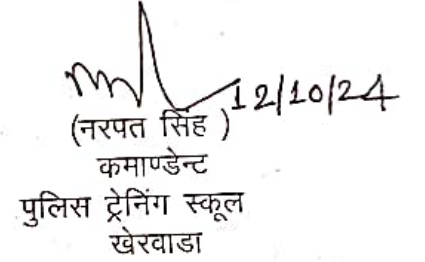 12/10/24
(नरपत सिंह )
कमाण्डेन्ट
पुलिस ट्रेनिंग स्कूल
खेरवाडा